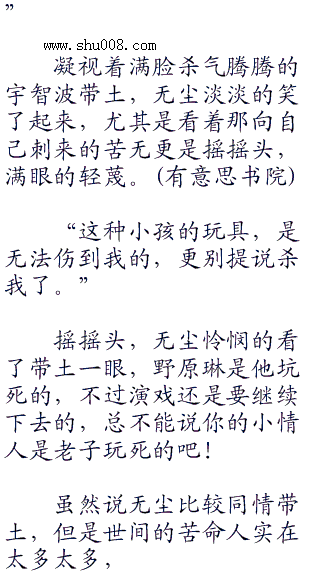 ”
www.shu008.com
凝视着满脸杀气腾腾的
宇智波带土，无尘淡淡的笑
了起来，尤其是看着那向自
己刺来的苦无更是摇摇头，
满眼的轻蔑。(有意思书院)
“这种小孩的玩具，是
无法伤到我的，更别提说杀
我了。”
摇摇头，无尘怜悯的看
了带土一眼，野原琳是他坑
死的，不过演戏还是要继续
下去的，总不能说你的小情
人是老子玩死的吧！
虽然说无尘比较同情带
土，但是世间的苦命人实在
太多太多，